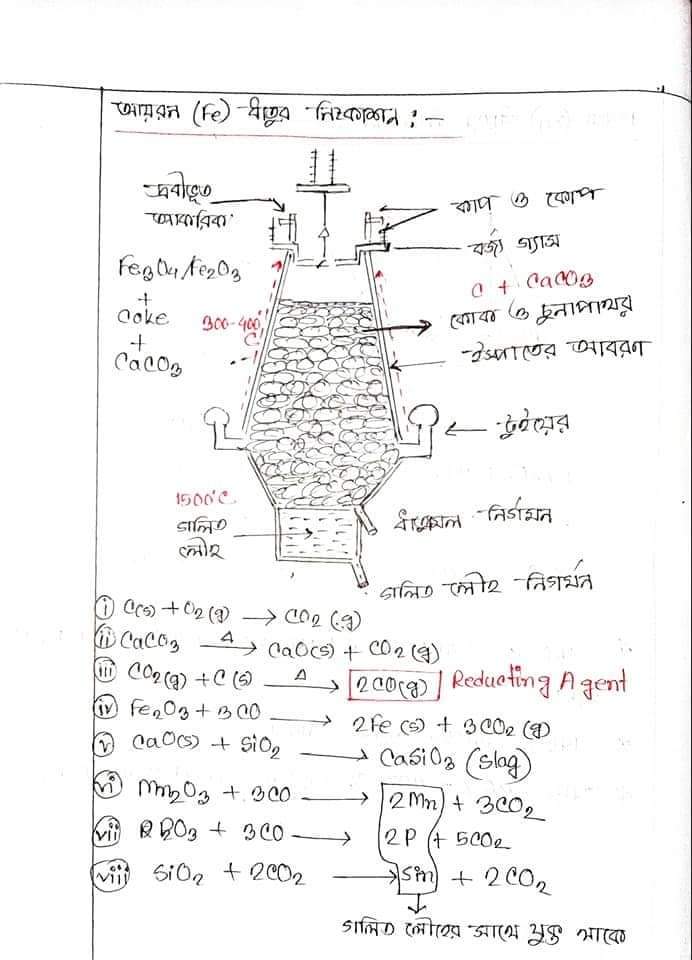 আয়রন (Fe) ধাতুর নিষ্কাশন : –
দ্রবীভূত
আকরিক
কাপ ও কোপ
বর্জ্য গ্যাস
Fe3O4/Fe2O3
+
Coke
+
CaCO3
300-400°C
C + CaCO3
কোক ও চুনাপাথর
ইস্পাতের আবরণ
টুইয়ের
1500°C
গলিত
লৌহ
ধাতুমল নির্গমন
গলিত লৌহ নিগর্মন
i C(s) + O2(g) → CO2(g)
ii CaCO3 —Δ→ CaO(s) + CO2(g)
iii CO2(g) + C(s) —Δ→ 2CO(g) Reducting Agent
iv Fe2O3 + 3CO → 2Fe(s) + 3CO2(g)
v CaO(s) + SiO2 → CaSiO3 (Slag)
vi Mn2O3 + 3CO → 2Mn + 3CO2
vii + 3CO → 2P + 5CO2
viii SiO2 + 2CO2 → + 2CO2
গলিত লৌহের সাথে যুক্ত থাকে